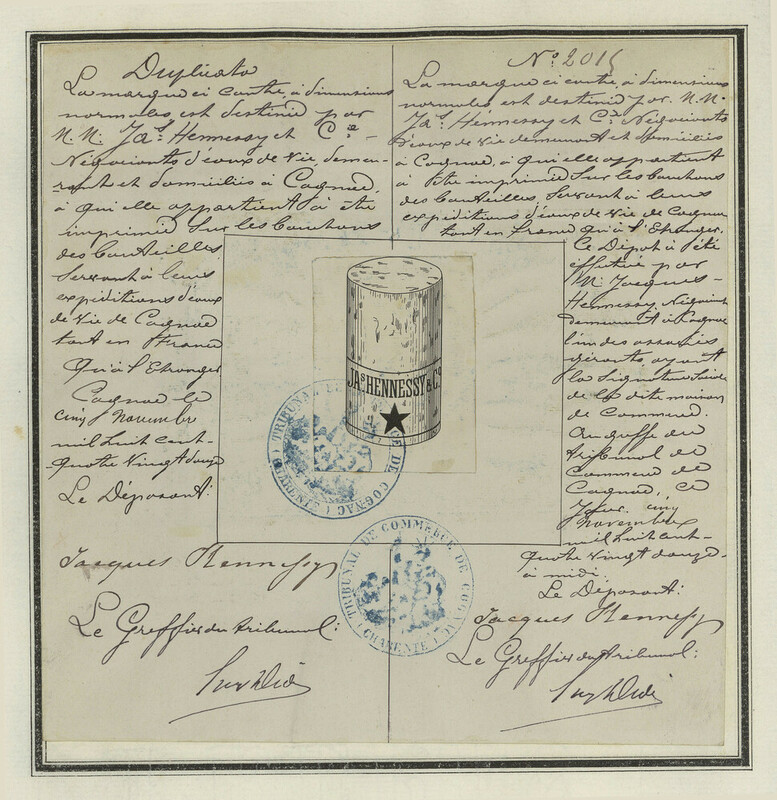 Duplicata
La marque ci contre, à dimensions
normales est destiné par
M.M. Jas Hennessy et Cie
Négociants d'eaux de vie, demeu-
rant et domiciliés à Cognac,
à qui elle appartient à être
imprimée sur les bouchons
des bouteilles
servant à leurs
expéditions d'eaux
de vie de Cognac
tant en France
qu'à l'Etranger
Cognac le
cinq novembre
mil huit cent-
quatre vingt douze
Le Déposant:
Jacques Hennessy
Le Greffier du tribunal:
No 2015
La marque ci contre, à dimensions
normales est destiné par M.M.
Jas Hennessy et Cie Négociants
d'eaux de vie demeurant et domiciliés
à Cognac, à qui elle appartient
à être imprimée sur les bouchons
des bouteilles, servant à leurs
expéditions d'eaux de vie de Cognac
tant en France qu'à l'Etranger.
Ce Dépot à été
effectué par
M. Jacques-
Hennessy Négociant
demeurant à Cognac
l'un des associés
gérants ayant
la signature
de la dite maison
de Commerce.
Au greffe du
tribunal de
Commerce de
Cognac, ce
jour, cinq
novembre
mil huit cent-
quatre vingt douze-
à midi.
Le Déposant:
Jacques Hennessy
Le Greffier du tribunal:
JAS HENNESSY & Co
TRIBUNAL DE COMMERCE DE COGNAC (CHARENTE)
TRIBUNAL DE COMMERCE DE COGNAC (CHARENTE)